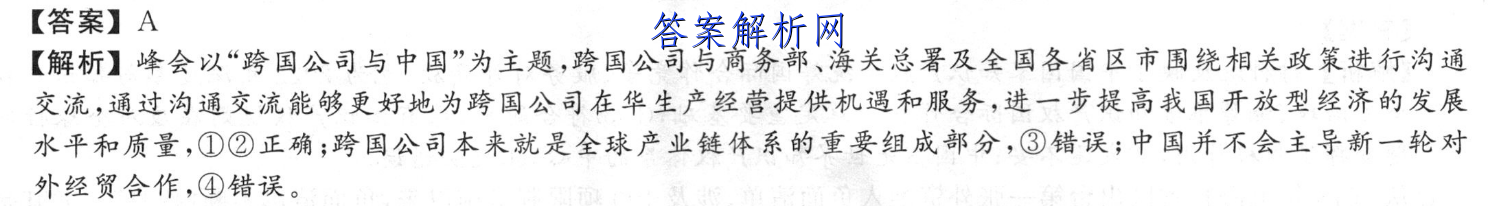 【答案】A
答案解析网
【解析】峰会以“跨国公司与中国”为主题,跨国公司与商务部、海关总署及全国各省区市围绕相关政策进行沟通
交流,通过沟通交流能够更好地为跨国公司在华生产经营提供机遇和服务,进一步提高我国开放型经济的发展
水平和质量,①②正确;跨国公司本来就是全球产业链体系的重要组成部分,③错误;中国并不会主导新一轮对
外经贸合作,④错误。